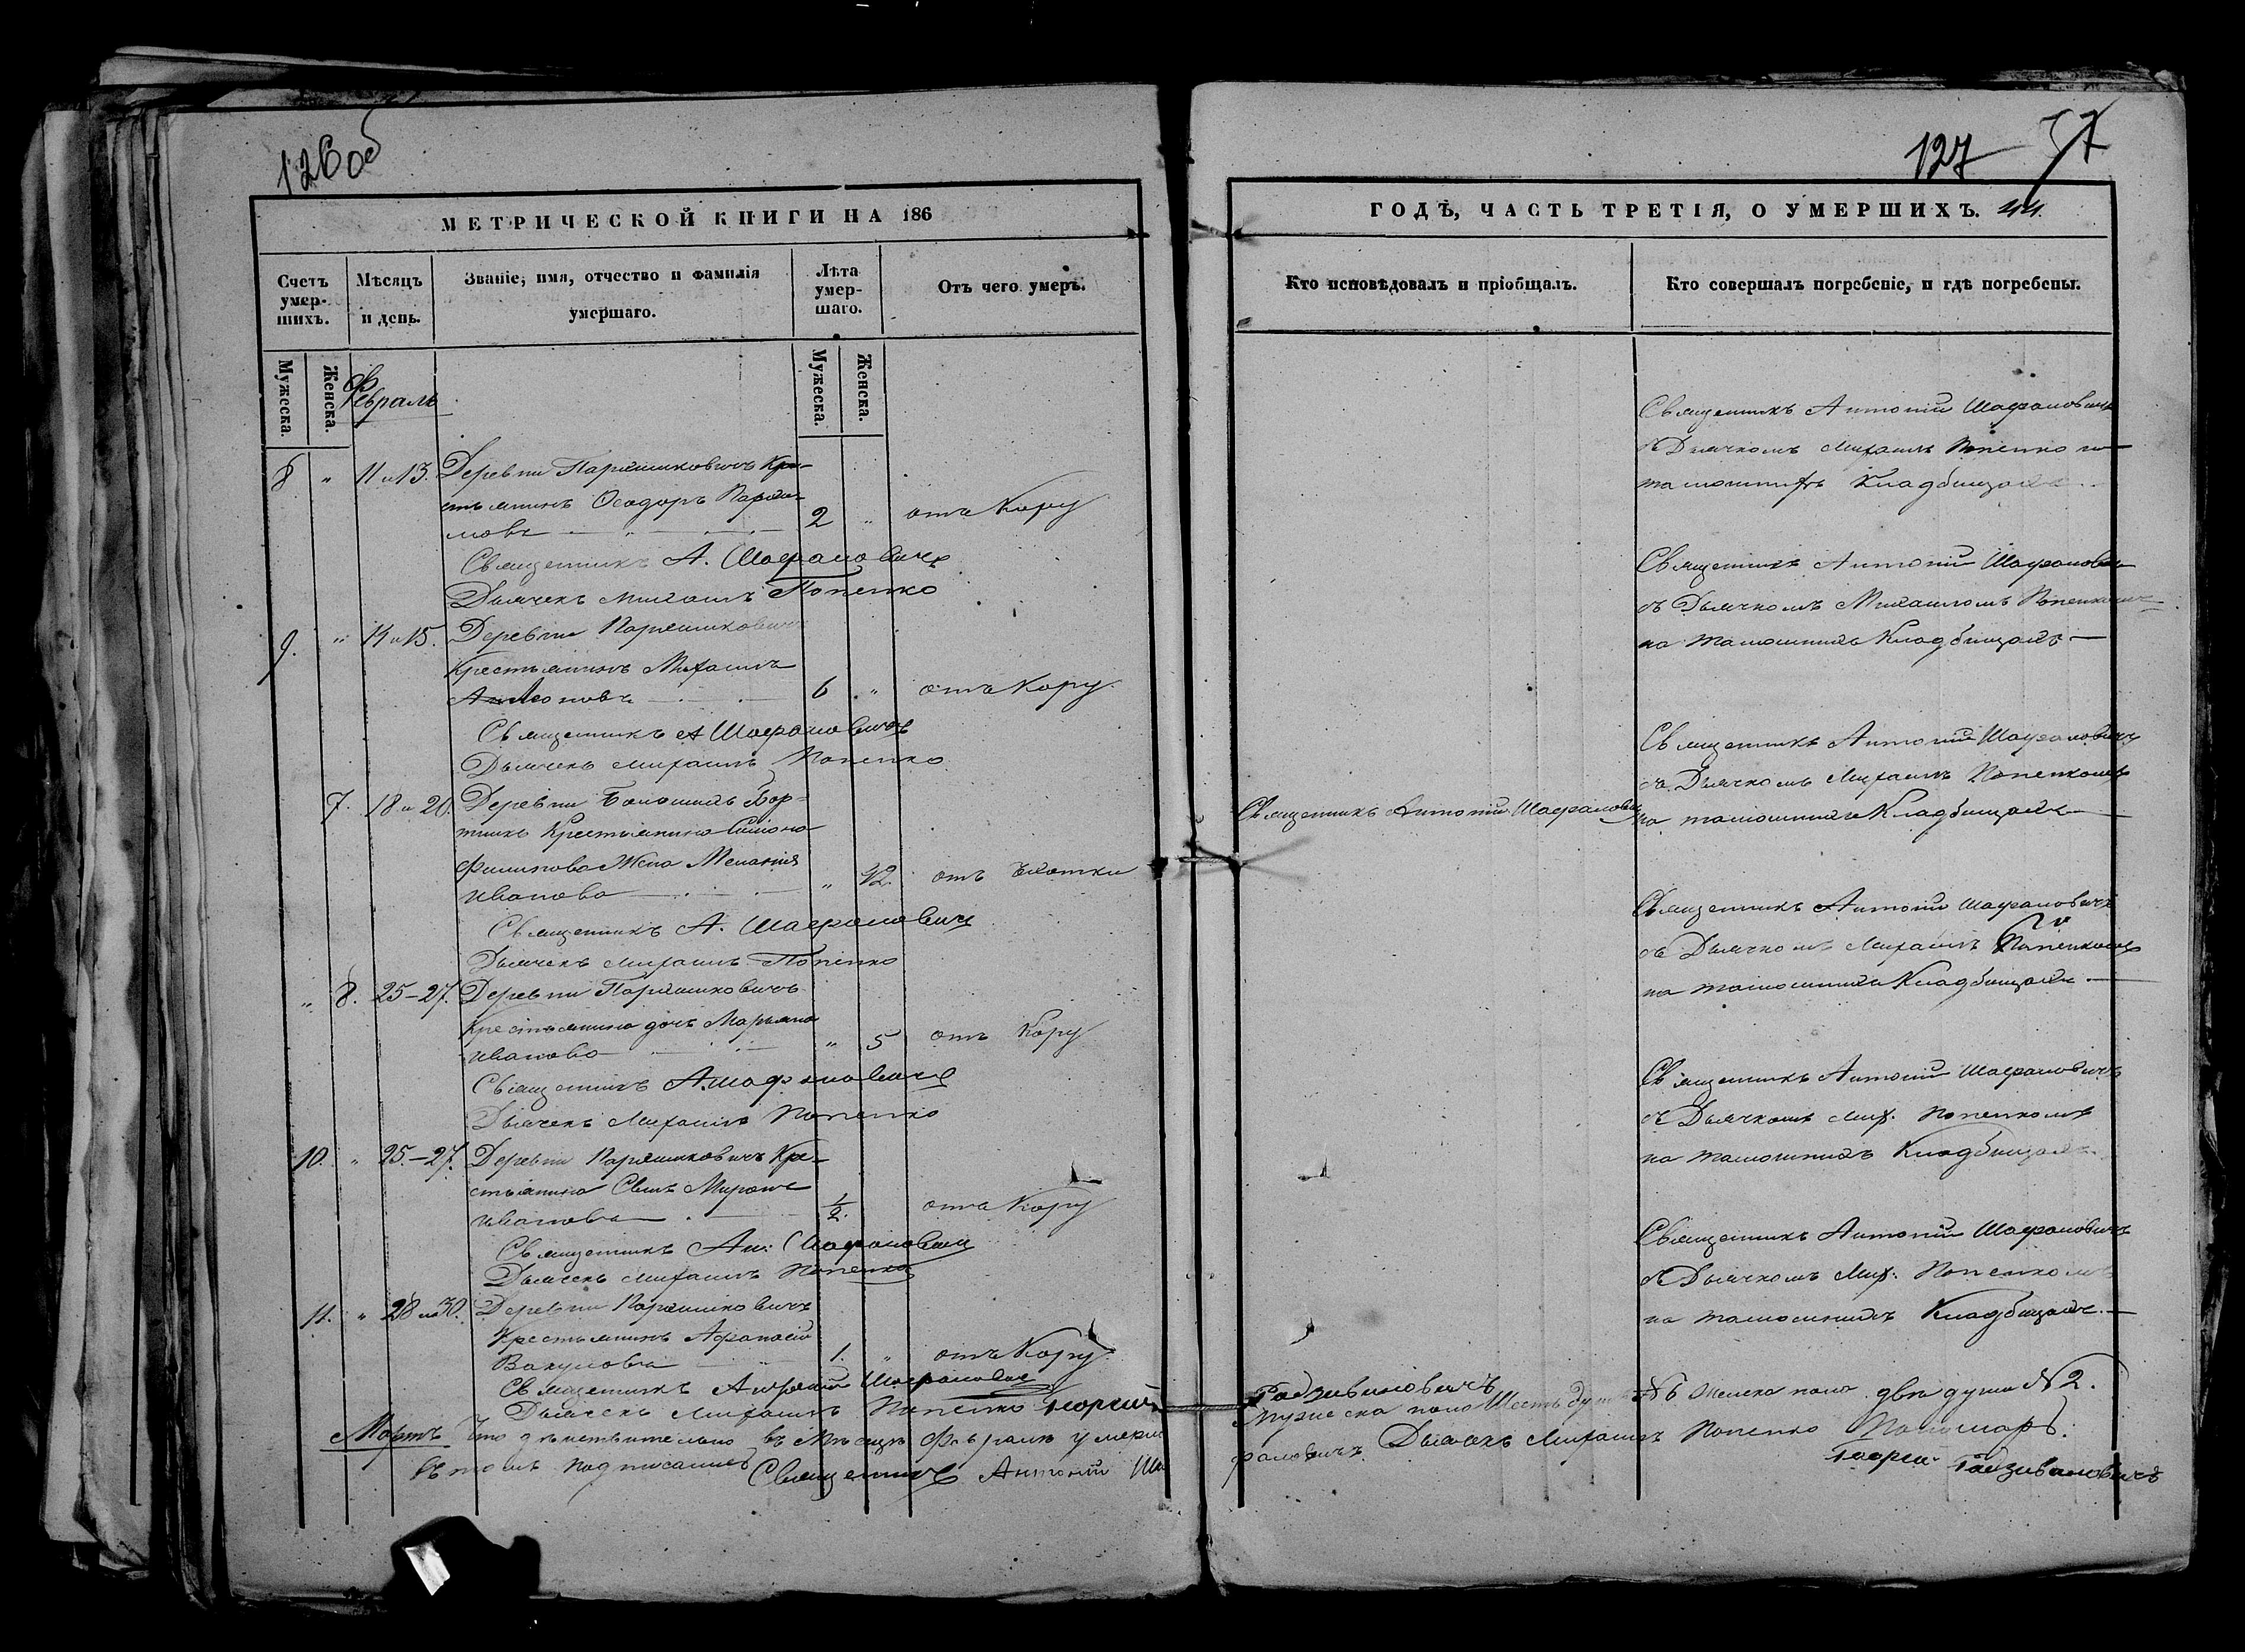 126 об
МЕТРИЧЕСКОЙ КНИГИ НА 186
Счетъ умер-шихъ.
Мѣсяцъ и день.
Званіе, имя, отчество и фамилія умершаго.
Лѣта умер-шаго.
Отъ чего умеръ.
Мужеска.
Женска.
Мужеска.
Женска.
Февраль
8 " 11 и 13. Деревни Парѣшиковичъ Кре-
стьянинъ Ѳеодоръ
мовъ 2 " отъ Кору
Священникъ А. Шафрановичъ
Дьячекъ Михаилъ Попенко
9. " 14 и 15. Деревни Парѣшиковичъ
Крестьянинъ Михаилъ
6 " отъ Кору
Священникъ А Шафрановичъ
Дьячекъ Михаилъ Попенко
7. 18 и 20. Деревни Бор-
тникъ Крестьянина Симона
Филипова Жена Меланія
Иванова " 42 отъ
Священникъ А. Шафрановичъ
Дьячекъ Михаилъ Попенко
" 8. 25-27. Деревни Парѣшиковичъ
Крестьянина дочь Марьяна
Иванова " 5 отъ Кору
Священникъ А. Шафрановичъ
Дьячекъ Михаилъ Попенко
10. " 25.-27. Деревни Парѣшиковичъ Кре-
стьянина Сынъ Миронъ
Ивановъ 1/2. отъ Кору
Священникъ Ан: Шафрановичъ
Дьячекъ Михаилъ Попенко
11. " 28 и 30. Деревни Парѣшиковичъ
Крестьянинъ Афанасій
Вакуловъ 1. " отъ Кору
Священникъ Антоній Шафрановичъ
Дьячекъ Михаилъ Попенко Георгій
Мартъ Что дѣйствительно въ мѣсяцѣ Февралѣ умерло
въ томъ подписались Священникъ Антоній Ша
127 37
ГОДѢ, ЧАСТЬ ТРЕТІЯ, О УМЕРШИХЪ. 44.
Кто исповѣдовалъ и пріобщалъ.
Кто совершалъ погребеніе, и гдѣ погребены.
Священникъ Антоній Шафрановичъ
съ Дьячкомъ Михаилъ Попенко на
тамошнихъ Кладбищахъ
Священникъ Антоній Шафрановичъ
съ Дьячкомъ Михаиломъ Попенкомъ
на тамошнихъ Кладбищахъ
Священникъ Антоній Шафрановичъ
съ Дьячкомъ Михаилъ Попенкомъ
Священникъ Антоній Шафрановичъ
на тамошнихъ Кладбищахъ
Священникъ Антоній Шафрановичъ
съ Дьячкомъ Михаилъ Попенкомъ
на тамошнихъ Кладбищахъ
Священникъ Антоній Шафрановичъ
съ Дьячкомъ Мих. Попенкомъ
на тамошнихъ Кладбищахъ
Священникъ Антоній Шафрановичъ
съ Дьячкомъ Мих. Попенкомъ
на тамошнихъ Кладбищахъ.
Гадзивановичъ
мужеска пола Шесть душъ №6 женска пола двѣ души №2.
франовичъ Дьячекъ Михаилъ Попенко Пономарь
Георгій Гадзивановичъ